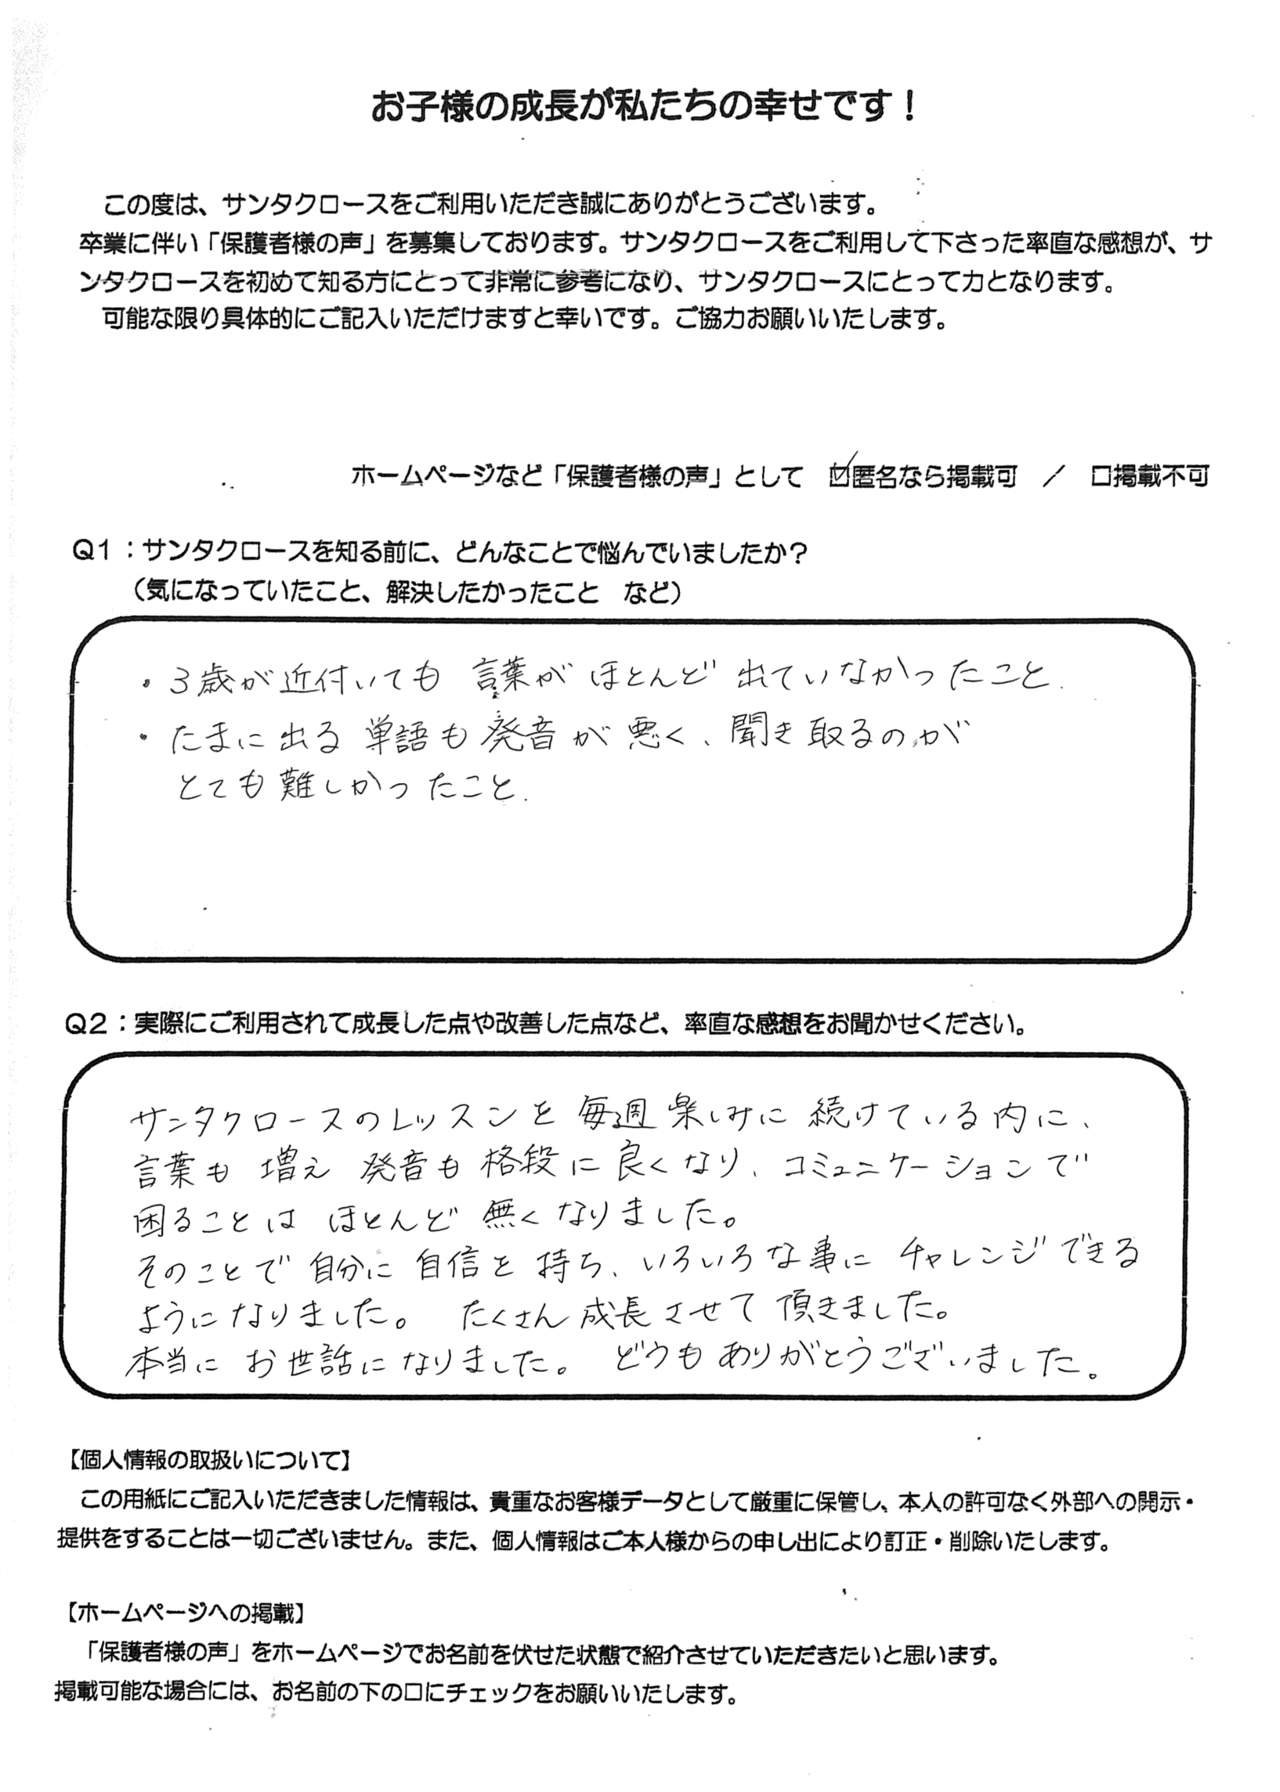 お子様の成長が私たちの幸せです！
この度は、サンタクロースをご利用いただき誠にありがとうございます。
卒業に伴い「保護者様の声」を募集しております。サンタクロースをご利用して下さった率直な感想が、サ
ンタクロースを初めて知る方にとって非常に参考になり、サンタクロースにとって力となります。
可能な限り具体的にご記入いただけますと幸いです。ご協力お願いいたします。
ホームページなど「保護者様の声」として ☑匿名なら掲載可 ／ □掲載不可
Q1：サンタクロースを知る前に、どんなことで悩んでいましたか？
（気になっていたこと、解決したかったこと など）
・3歳が近付いても 言葉が ほとんど 出ていなかったこと.
・たまに出る 単語も 発音が 悪く、聞き取るのが
とても難しかったこと.
Q2：実際にご利用されて成長した点や改善した点など、率直な感想をお聞かせください。
サンタクロースのレッスンを 毎週 楽しみに 続けている内に、
言葉も 増え 発音も 格段に 良くなり、コミュニケーションで
困ることは ほとんど 無くなりました。
そのことで 自分に 自信を 持ち、いろいろな事に チャレンジできる
ようになりました。 たくさん 成長させて 頂きました。
本当に お世話になりました。 どうもありがとうございました。
【個人情報の取扱いについて】
この用紙にご記入いただきました情報は、貴重なお客様データとして厳重に保管し、本人の許可なく外部への開示・
提供をすることは一切ございません。また、個人情報はご本人様からの申し出により訂正・削除いたします。
【ホームページへの掲載】
「保護者様の声」をホームページでお名前を伏せた状態で紹介させていただきたいと思います。
掲載可能な場合には、お名前の下の□にチェックをお願いいたします。